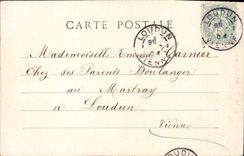 CARTE POSTALE
LOUDUN
LOUDUN
Mademoiselle Emma Garnier
Chez ses Parents Boulanger
au Martray
à Loudun
Vienne